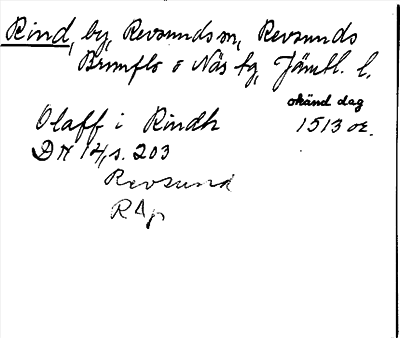 Rind, by, Revsunds sn, Revsunds
Brunflo o Näs tg, Jämtl. l.
okänd dag
Olaff i Rindh 1513 or.
DN 14, s. 203
Revsund
RAp